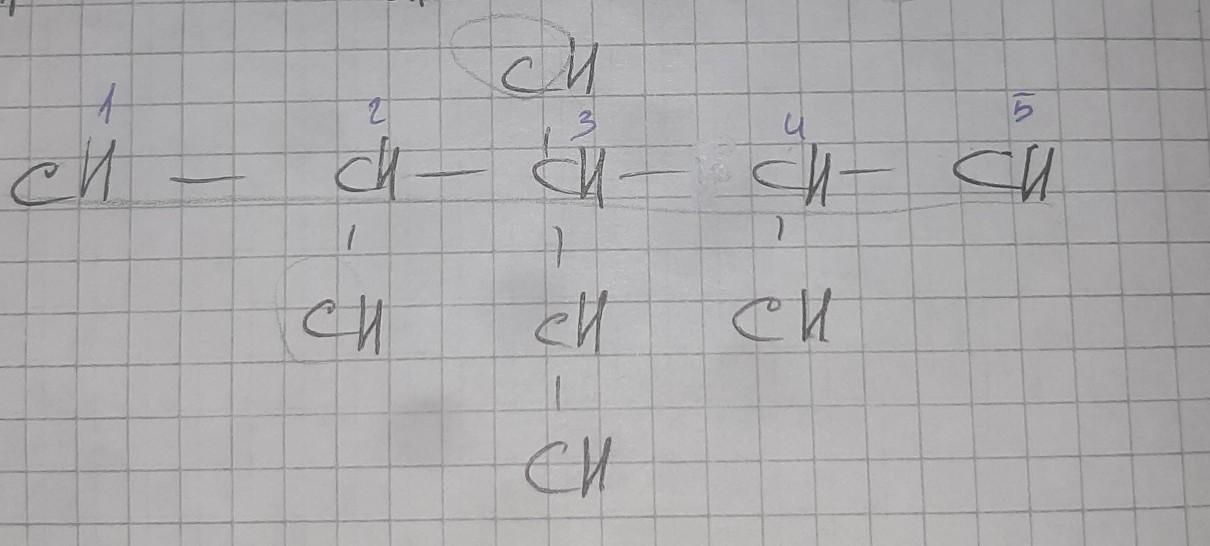 CH
1 2 3 4 5
CH — CH — CH — CH — CH
CH CH CH
CH